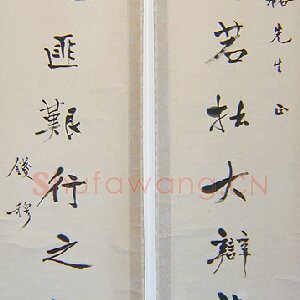 先生正
若拙大辯
匪艱行之
錢穆
Shufawang.CN